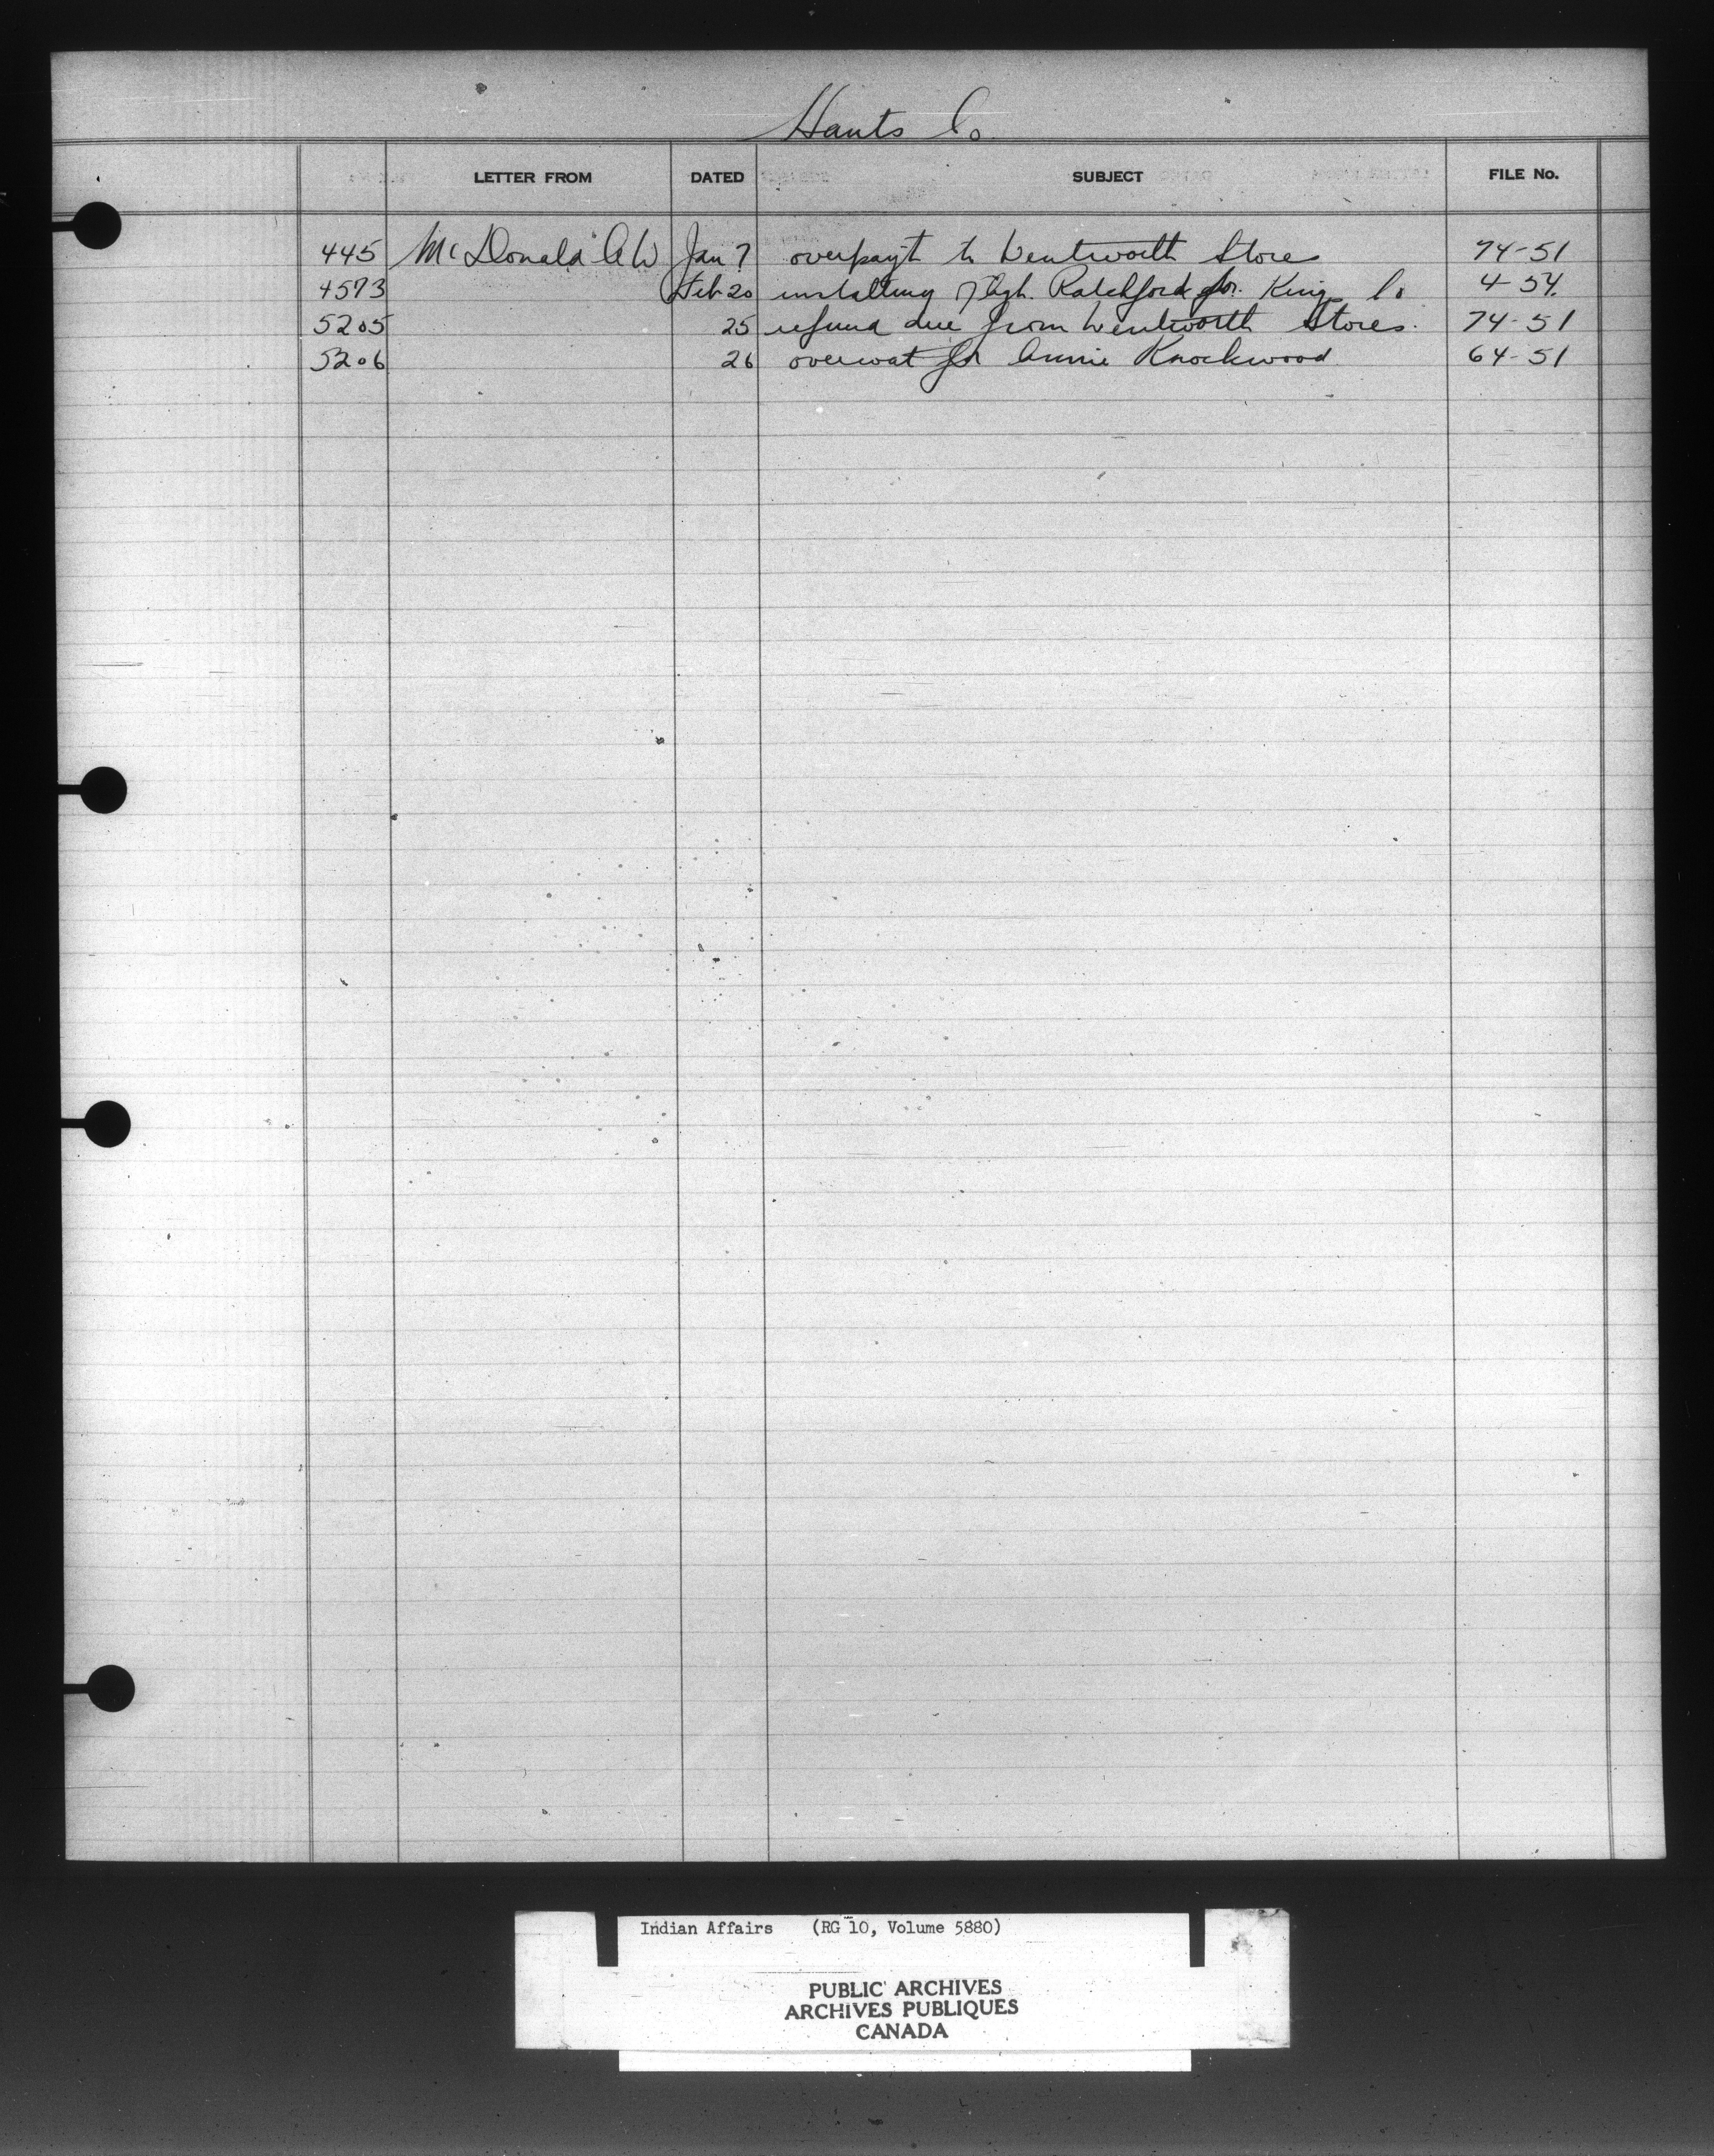 Hants Co.
LETTER FROM DATED SUBJECT FILE No.
445 McDonald A W Jan 7 overpayt to Wentworth Stores 74-51
4573 Feb 20 installing of Agt. Ratchford for Kings Co 4-54.
5205 25 refund due from Wentworth Stores. 74-51
5206 26 overcoat for Annie Knockwood 64-51
Indian Affairs (RG 10, Volume 5880)
PUBLIC ARCHIVES
ARCHIVES PUBLIQUES
CANADA